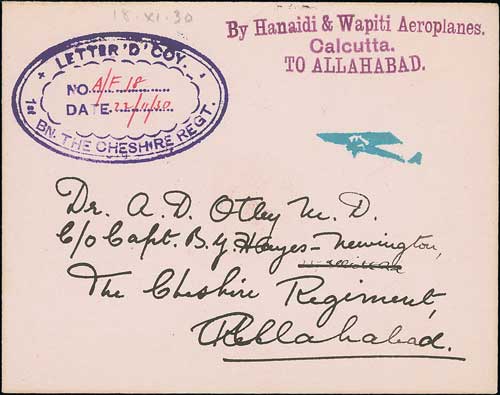 18.XI.30
By Hanaidi & Wapiti Aeroplanes.
Calcutta.
TO ALLAHABAD.
LETTER 'D' COY.
NO. A/F 18
DATE 22/11/30
1st BN. THE CHESHIRE REGT.
Dr. A. D. Otley M. D.
C/o Capt. B. Y. Hayes-Newington,
The Cheshire Regiment,
Allahabad.